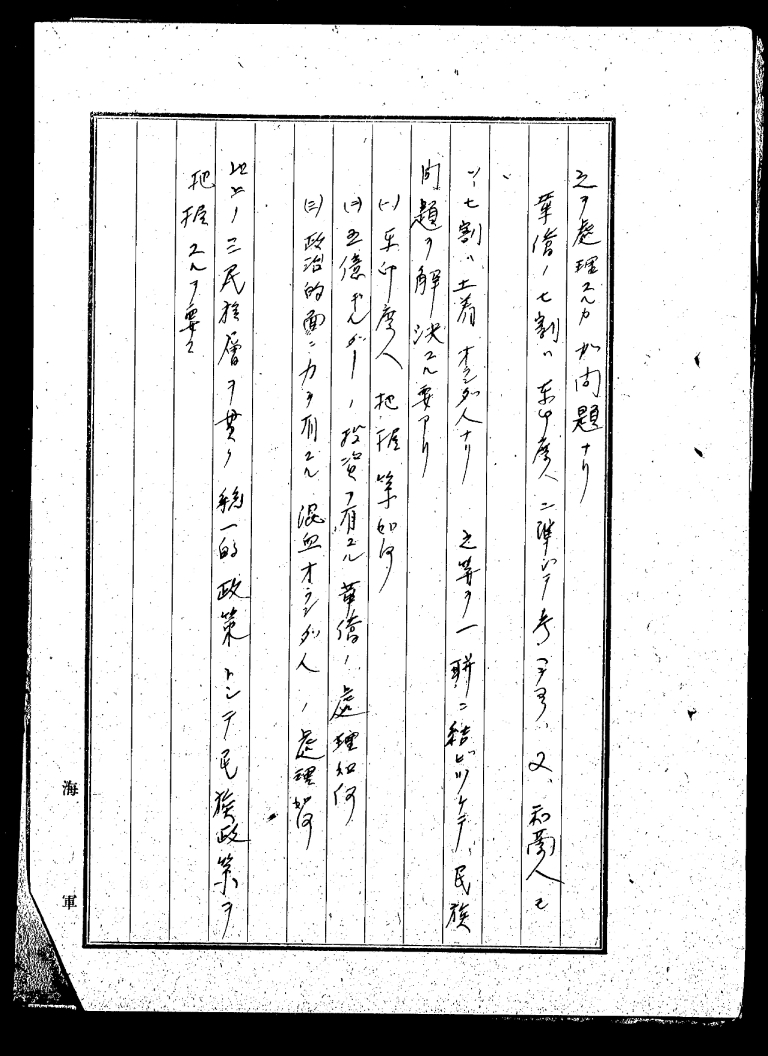 之ヲ處理スルカガ問題ナリ
華僑ノ七割ハ東印度人ニ準ジテ考フ可ク、又、和蘭人モ
七割ハ土着オランダ人ナリ　之等ヲ一聯ニ結ビツケテ、民族
問題ヲ解決スル要アリ
(一)東印度人把握策如何
(二)五億ギルダーノ投資ヲ有スル華僑ノ處理如何
(三)政治的面ニ力ヲ有スル混血オランダ人ノ處理如何
此上ノ三民族層ヲ貫ク統一的政策トシテ民族政策ヲ
把握スルヲ要ス
海軍